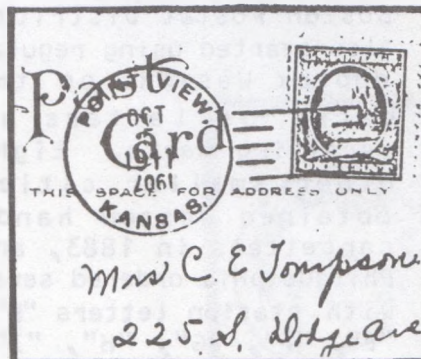 Post
Card
POINT VIEW,
OCT
5
1911
1907
KANSAS.
ONE CENT
THIS SPACE FOR ADDRESS ONLY
Mrs C E Tompson
225 S. Dodge Ave